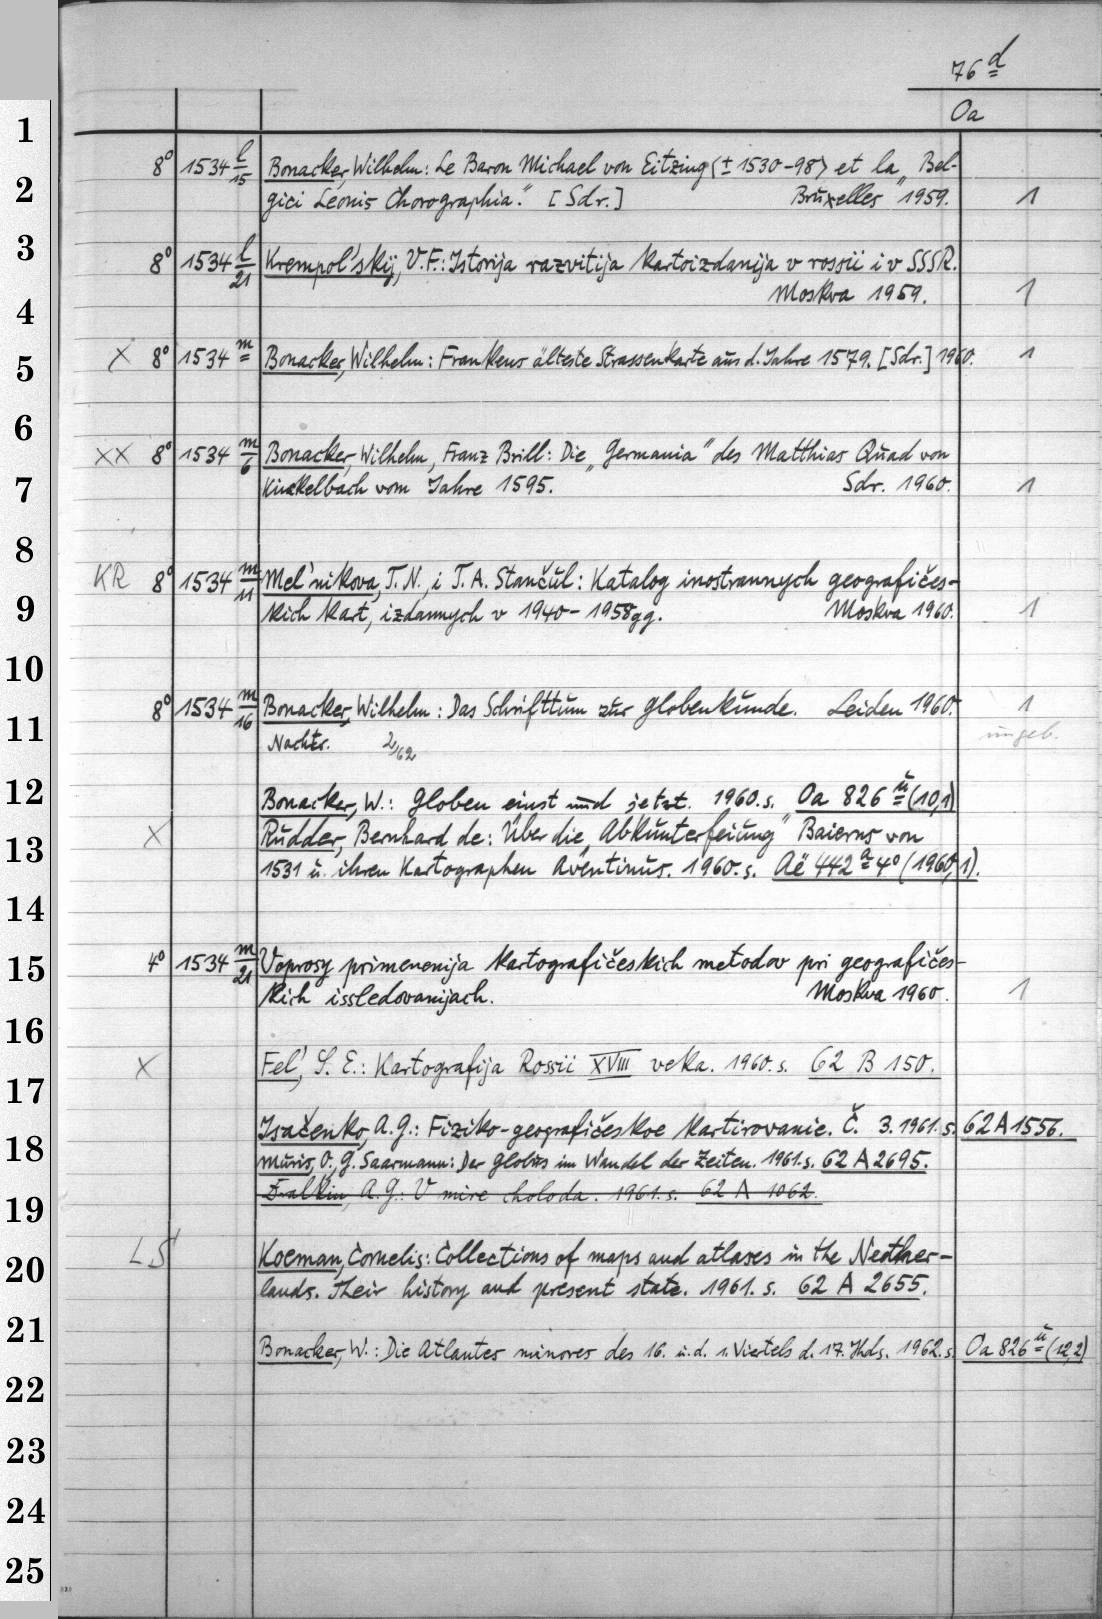 76 d
Oa
1
8° 1534 l/15 Bonacker, Wilhelm: Le Baron Michael von Eitzing (± 1530-98) et la „Bel-
2
gici Leonis Chorographia." [Sdr.] Bruxelles 1959. 1
3
8° 1534 l/21 Krempol'skij, V.F.: Istorija razvitija kartoizdanija v rossii i v SSSR.
4
Moskva 1959. 1
5
X 8° 1534 m Bonacker, Wilhelm: Frankens älteste Strassenkarte aus d. Jahre 1579. [Sdr.] 1960. 1
6
XX 8° 1534 m/6 Bonacker, Wilhelm, Franz Brill: Die „Germania" des Matthias Quad von
7
Kinckelbach vom Jahre 1595. Sdr. 1960. 1
8
KR 8° 1534 m/11 Mel'nikova, T.N., i T.A. Stančul: Katalog inostrannych geografičes-
9
kich kart, izdannych v 1940-1958gg. Moskva 1960. 1
10
8° 1534 m/16 Bonacker, Wilhelm: Das Schrifttum zur Globenkunde. Leiden 1960. 1
11
Nachtr. 2/62 ungeb.
12
Bonacker, W.: Globen einst und jetzt. 1960. s. Oa 826 ü (10,1)
X Rudder, Bernhard de: Über die „Abkunterfeiung" Baierns von
13
1531 u. ihren Kartographen Aventinus. 1960. s. Aë 442 a 4° (1960,1).
14
15
4° 1534 m/21 Voprosy primenenija kartografičeskich metodov pri geografičes-
kich issledovanijach. Moskva 1960. 1
16
X Fel', S. E.: Kartografija Rossii XVIII veka. 1960. s. 62 B 150.
17
Isačenko, A.G.: Fiziko-geografičeskoe kartirovanie. Č. 3. 1961. s. 62 A 1556.
18
Muris, O., G. Saarmann: Der Globus im Wandel der Zeiten. 1961. s. 62 A 2695.
19
A.G.: V mire choloda. 1961. s. 62 A 1062.
LS
20
Koeman, Cornelis: Collections of maps and atlases in the Nether-
lands. Their history and present state. 1961. s. 62 A 2655.
21
Bonacker, W.: Die Atlantes minores des 16. u. d. 1. Viertels d. 17. Jhds. 1962. s. Oa 826 ü (12,2)
22
23
24
25